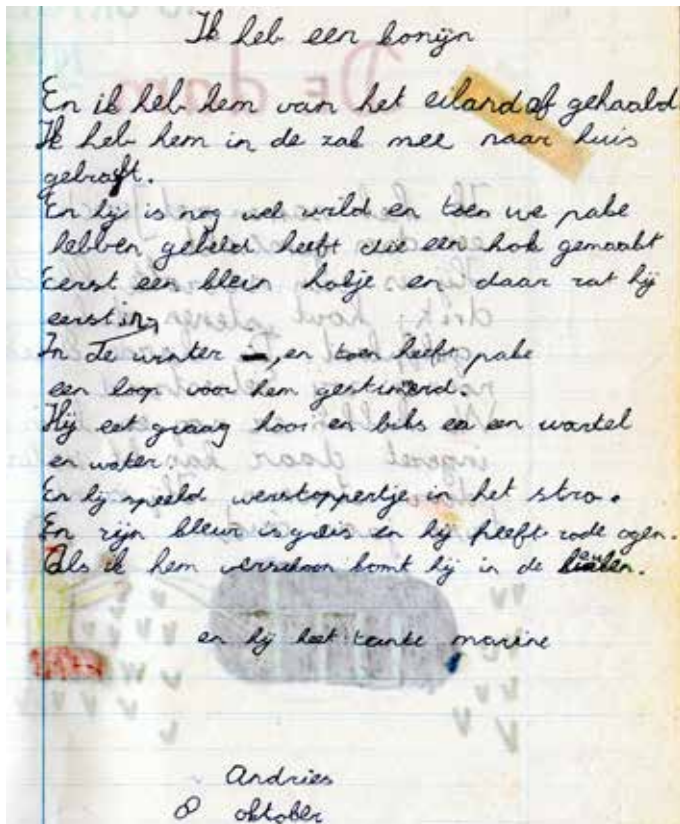 Ik heb een konijn
En ik heb hem van het eiland af gehaald.
Ik heb hem in de zak mee naar huis
gebraft.
En hij is nog wel wild en toen we pake
hebben gebeld heeft die een hok gemaakt
Eerst een klein hokje en daar zat hij
eerst in,
In de winter, en toen heeft pake
een loop voor hem getimerd.
Hij eet graag hooi en biks en een wortel
en water.
En hij speeld verstoppertje in het stro.
En zijn kleur is grijs en hij heeft rode ogen.
Als ik hem verschoon komt hij in de keuken.
en hij heet tante marine
Andries
8 oktober
DE dam